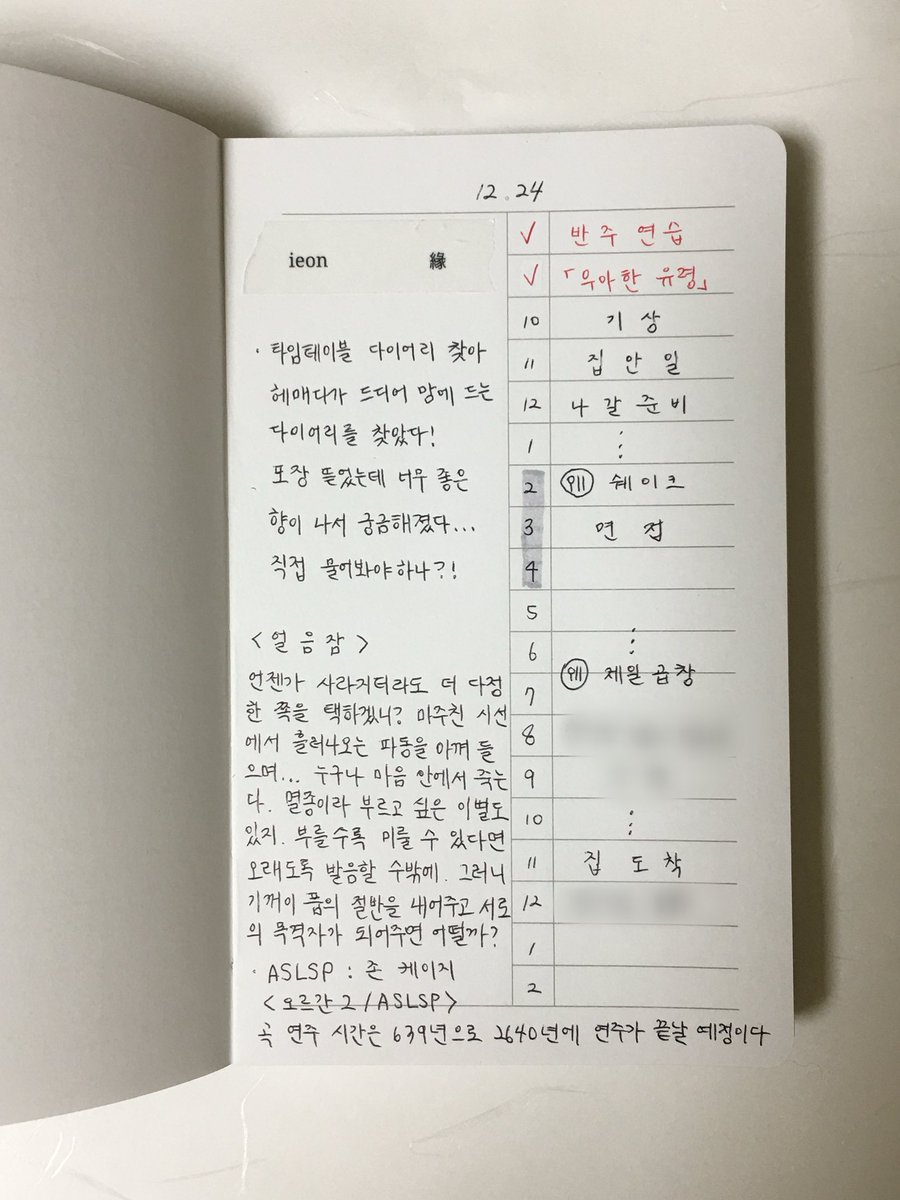 12.24
ieon 緣
· 타임테이블 다이어리 찾아
헤매다가 드디어 맘에 드는
다이어리를 찾았다!
포장 뜯었는데 너무 좋은
향이 나서 궁금해졌다...
직접 물어봐야하나?!
<얼음잠>
언젠가 사라지더라도 더 다정
한 쪽을 택하겠니? 마주친 시선
에서 흘러나오는 파동을 아껴 들
으며... 누구나 마음 안에서 죽는
다. 멸종이라 부르고 싶은 이별도
있지. 부를수록 미룰 수 있다면
오래도록 발음할 수밖에. 그러니
기꺼이 품의 절반을 내어주고 서로
의 목격자가 되어주면 어떨까?
· ASLSP : 존 케이지
<오르간2/ASLSP>
곡 연주 시간은 639년으로 2640년에 연주가 끝날 예정이다
✓ 반주 연습
✓ 「우아한 유령」
10 기상
11 집안일
12 나갈 준비
1 ⋮
2 예 쉐이크
3 면접
4
5
6 ⋮
7 예 제일곱창
8
9
10 ⋮
11 집 도착
12
1
2